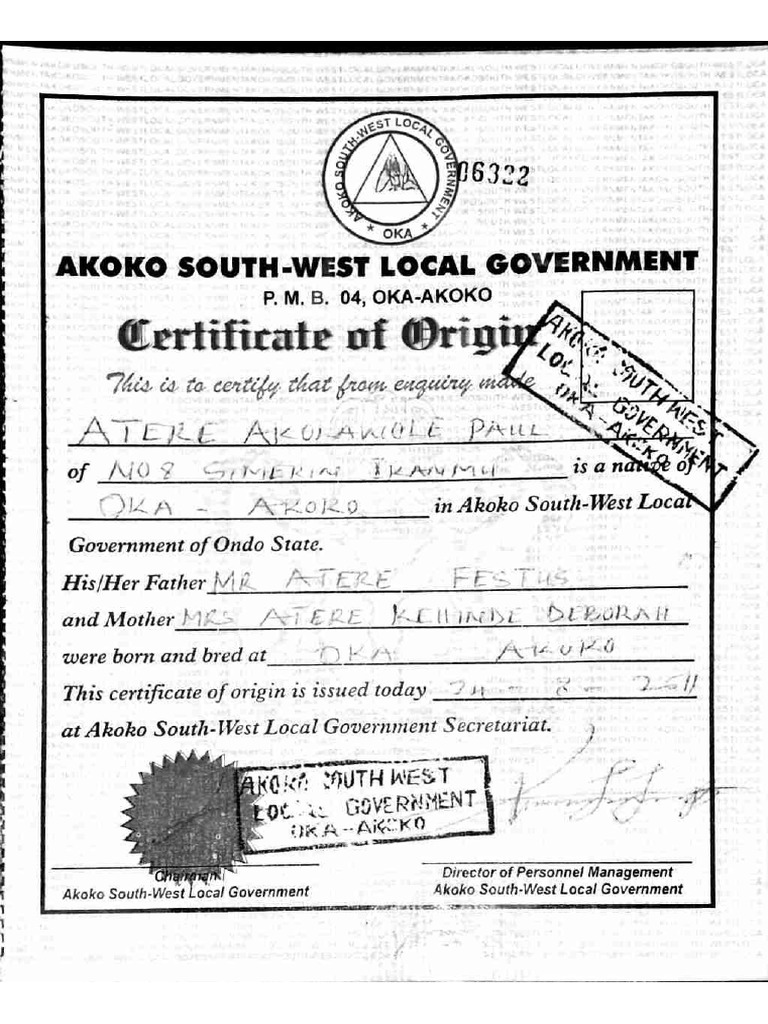 AKOKO SOUTH-WEST LOCAL GOVERNMENT
* OKA *
06322
AKOKO SOUTH-WEST LOCAL GOVERNMENT
P. M. B. 04, OKA-AKOKO
Certificate of Origin
This is to certify that from enquiry made
ATERE AKOLAWOLE PAUL
of NO 8 SIMERIN IKANMU is a native of
OKA - AKOKO in Akoko South-West Local
Government of Ondo State.
His/Her Father MR ATERE FESTUS
and Mother MRS ATERE KEHINDE DEBORAH
were born and bred at OKA AKOKO
This certificate of origin is issued today 24 - 8 - 2011
at Akoko South-West Local Government Secretariat.
AKOKO SOUTH WEST
LOCAL GOVERNMENT
OKA - AKOKO
AKOKO SOUTH WEST
LOCAL GOVERNMENT
OKA - AKOKO
Chairman
Akoko South-West Local Government
Director of Personnel Management
Akoko South-West Local Government